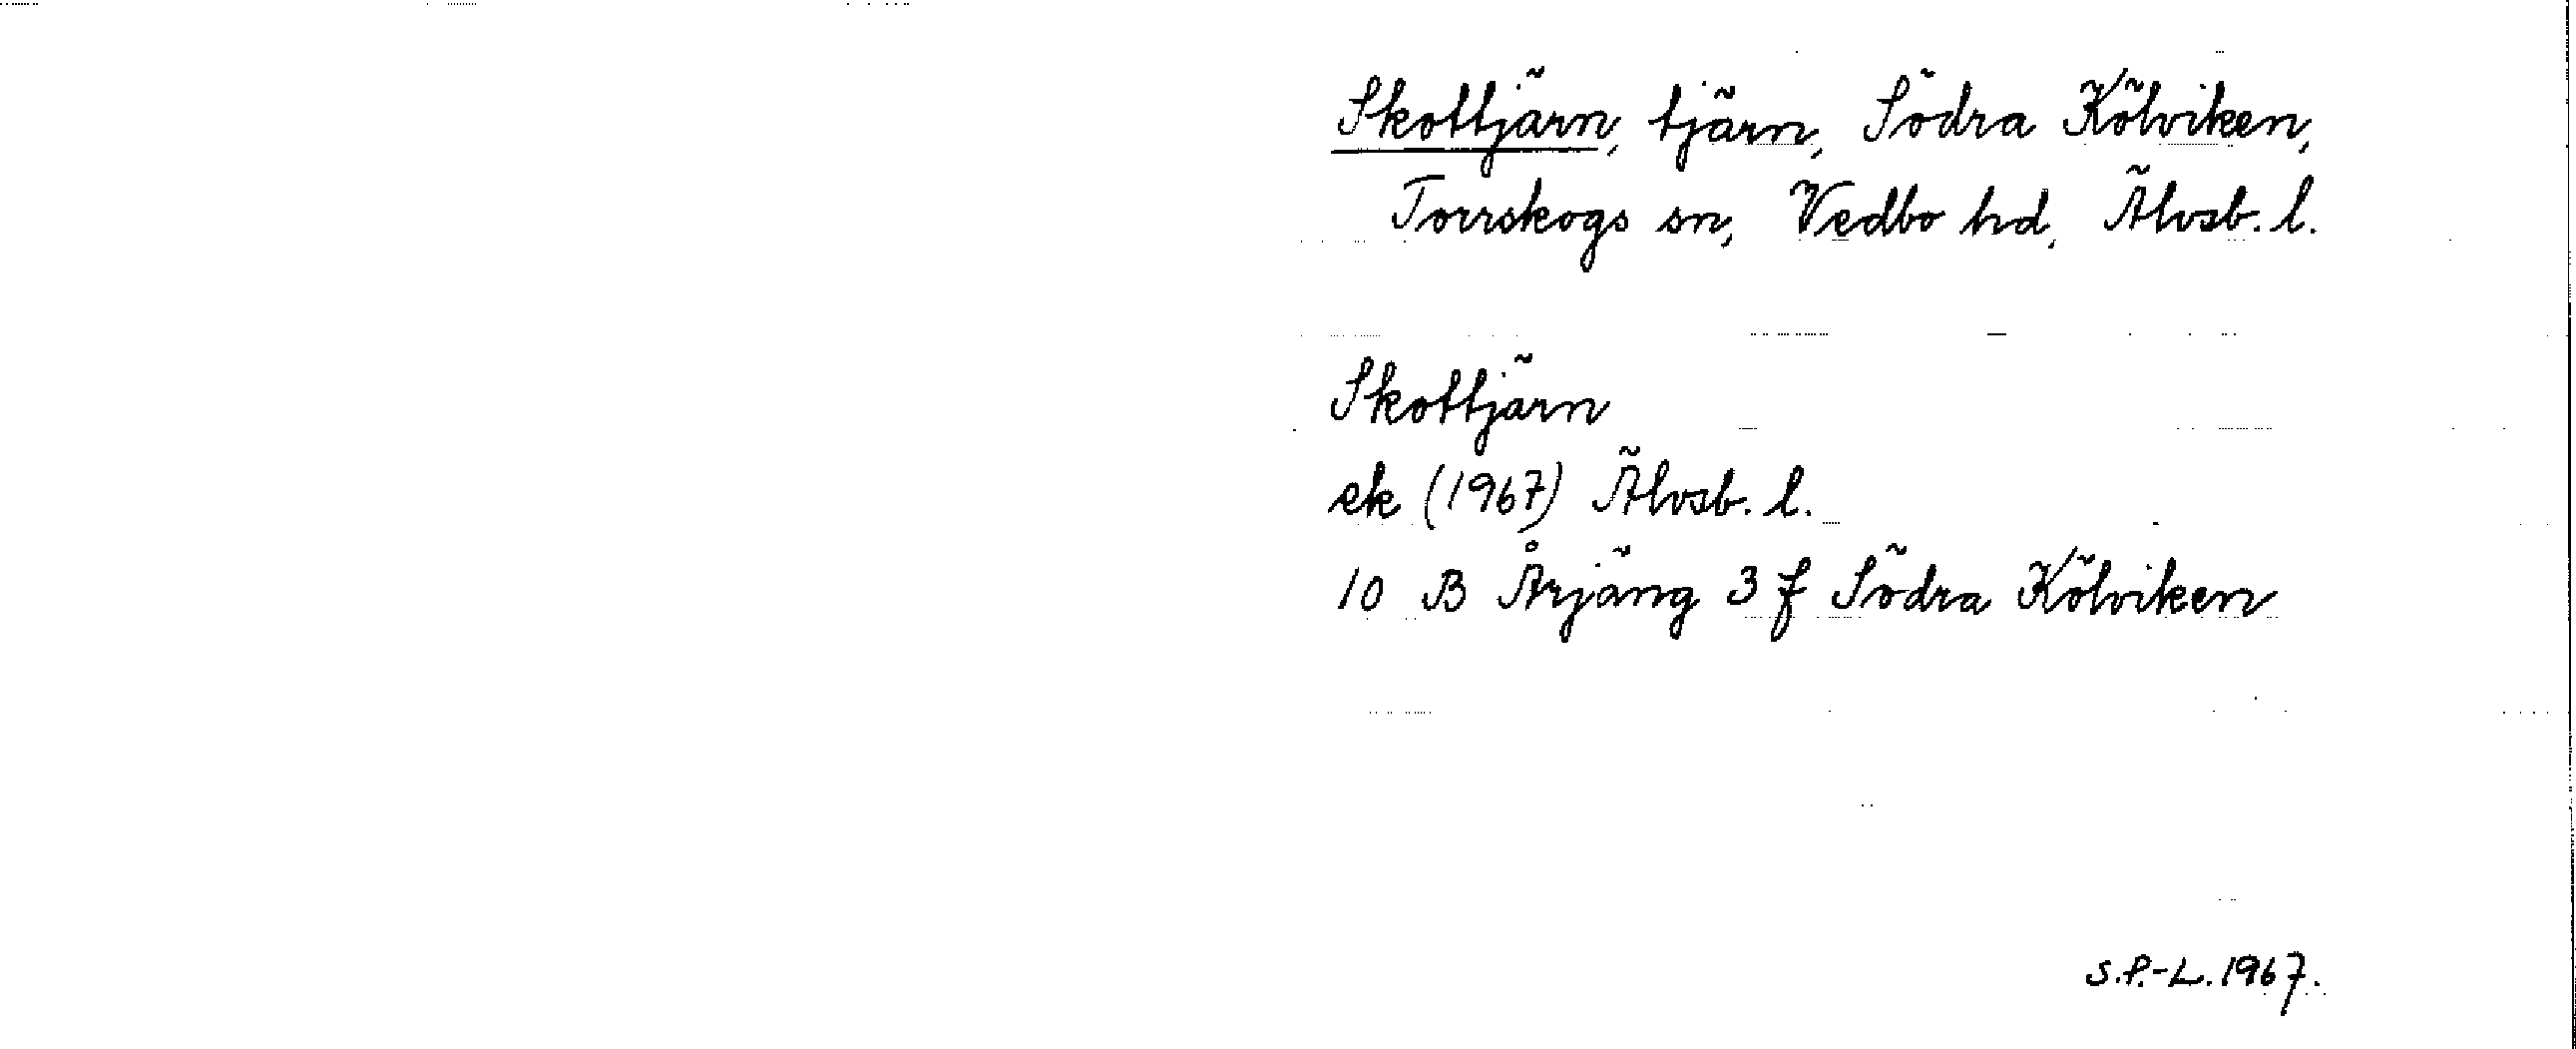 Skottjärn, tjärn, Södra Kölviken,
Torrskogs sn, Vedbo hd, Älvsb. l.
Skottjärn
ek (1967) Älvsb. l.
10 B Årjäng 3 f Södra Kölviken
S.P.-L. 1967.